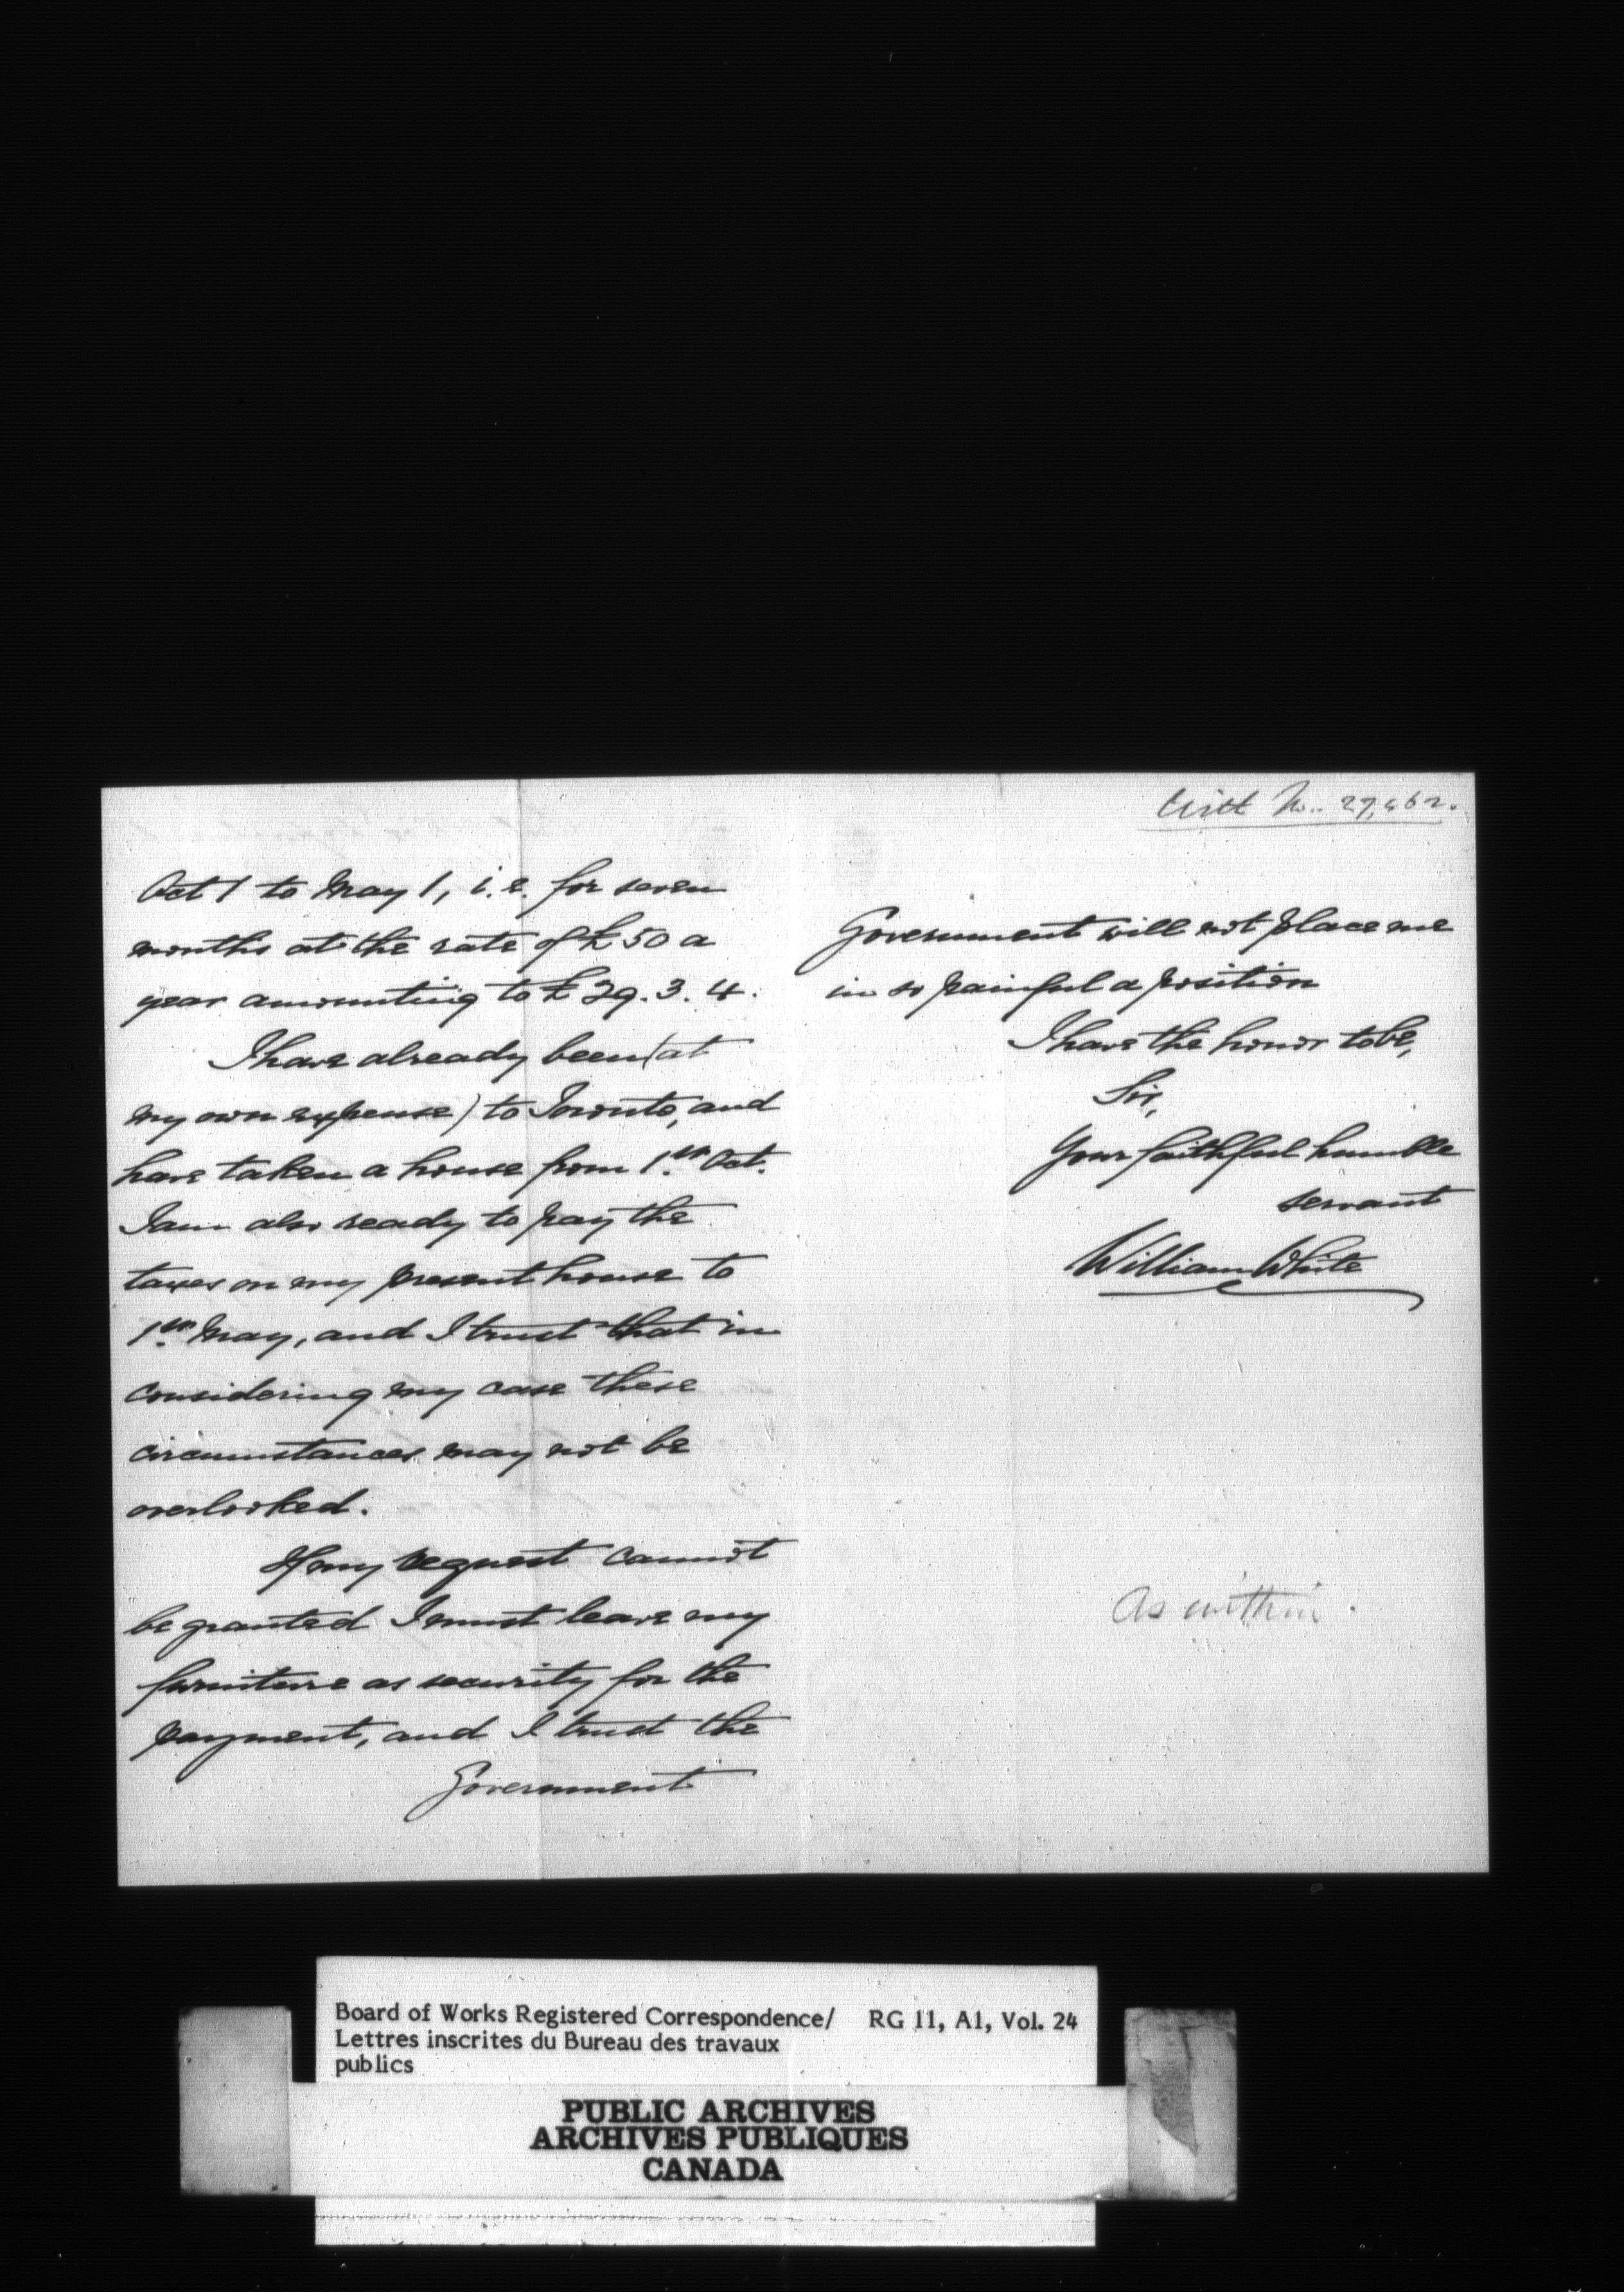 Oct 1 to May 1, i.e. for seven
months at the rate of £50 a
year amounting to £29.3.4.
I have already been (at
my own expense) to Toronto, and
have taken a house from 1.st Oct.
I am also ready to pay the
taxes on my present house to
1.st May, and I trust that in
considering my case these
circumstances may not be
overlooked.
If my request cannot
be granted I must leave my
furniture as security for the
payment, and I trust the
Government
With No. 27,462.
Government will not place me
in so painful a position
I have the honor to be,
Sir,
Your faithful humble
servant
William White
As within.
Board of Works Registered Correspondence/ RG 11, A1, Vol. 24
Lettres inscrites du Bureau des travaux
publics
PUBLIC ARCHIVES
ARCHIVES PUBLIQUES
CANADA